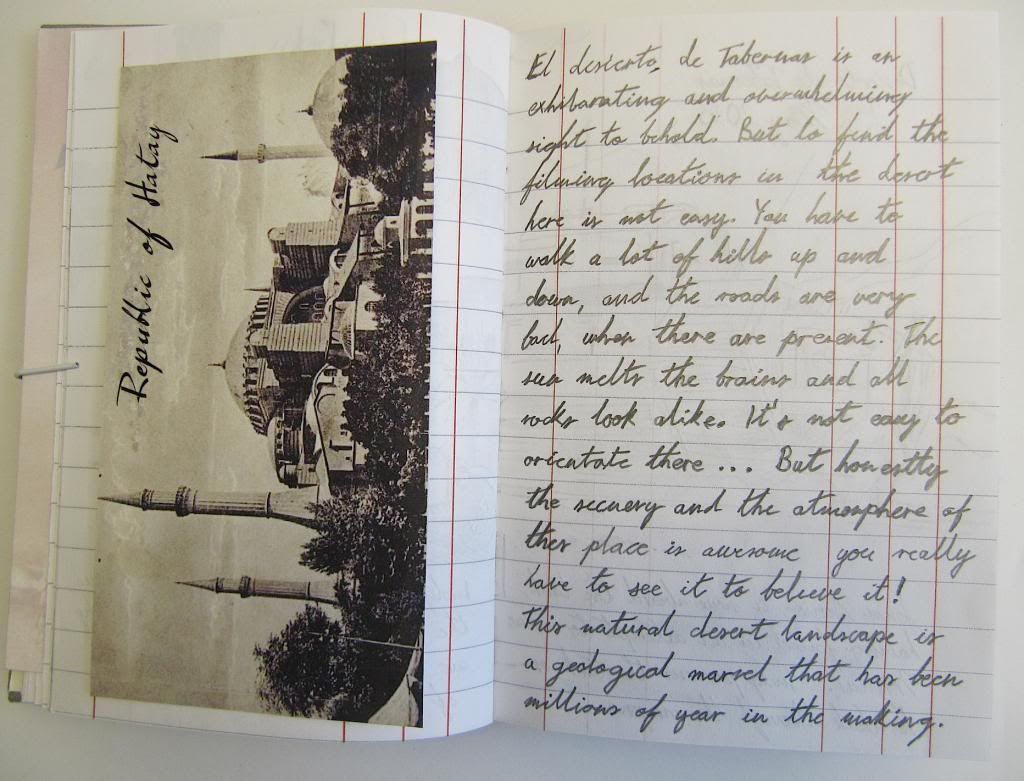 Republic of Hatay
El desierto, de Tabernas is an
exhilarating and overwhelming
sight to behold. But to find the
filming locations in the desert
here is not easy. You have to
walk a lot of hills up and
down, and the roads are very
bad, when there are present. The
sun melts the brains and all
rocks look alike. It's not easy to
orientate there ... But honestly
the scenery and the atmosphere of
this place is awesome you really
have to see it to believe it!
This natural desert landscape is
a geological marvel that has been
millions of year in the making.